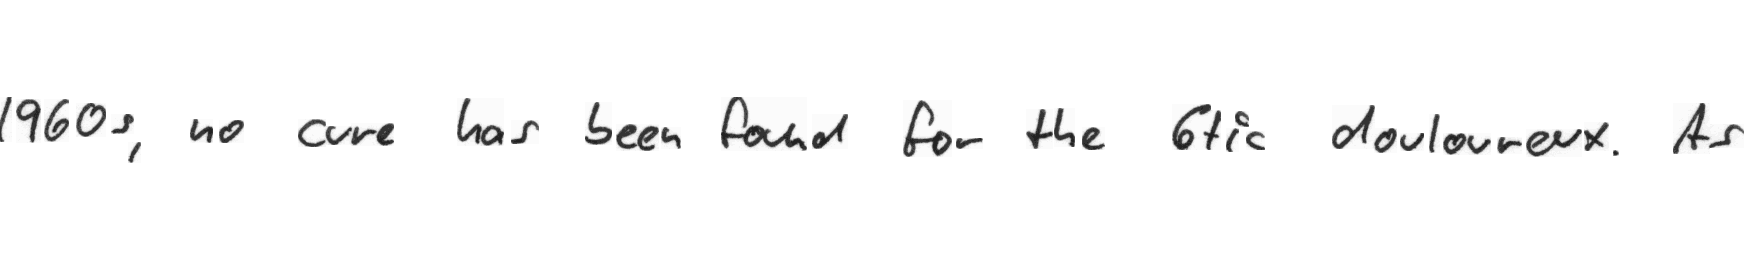 1960s, no cure has been found for the 6tic douloureux. As